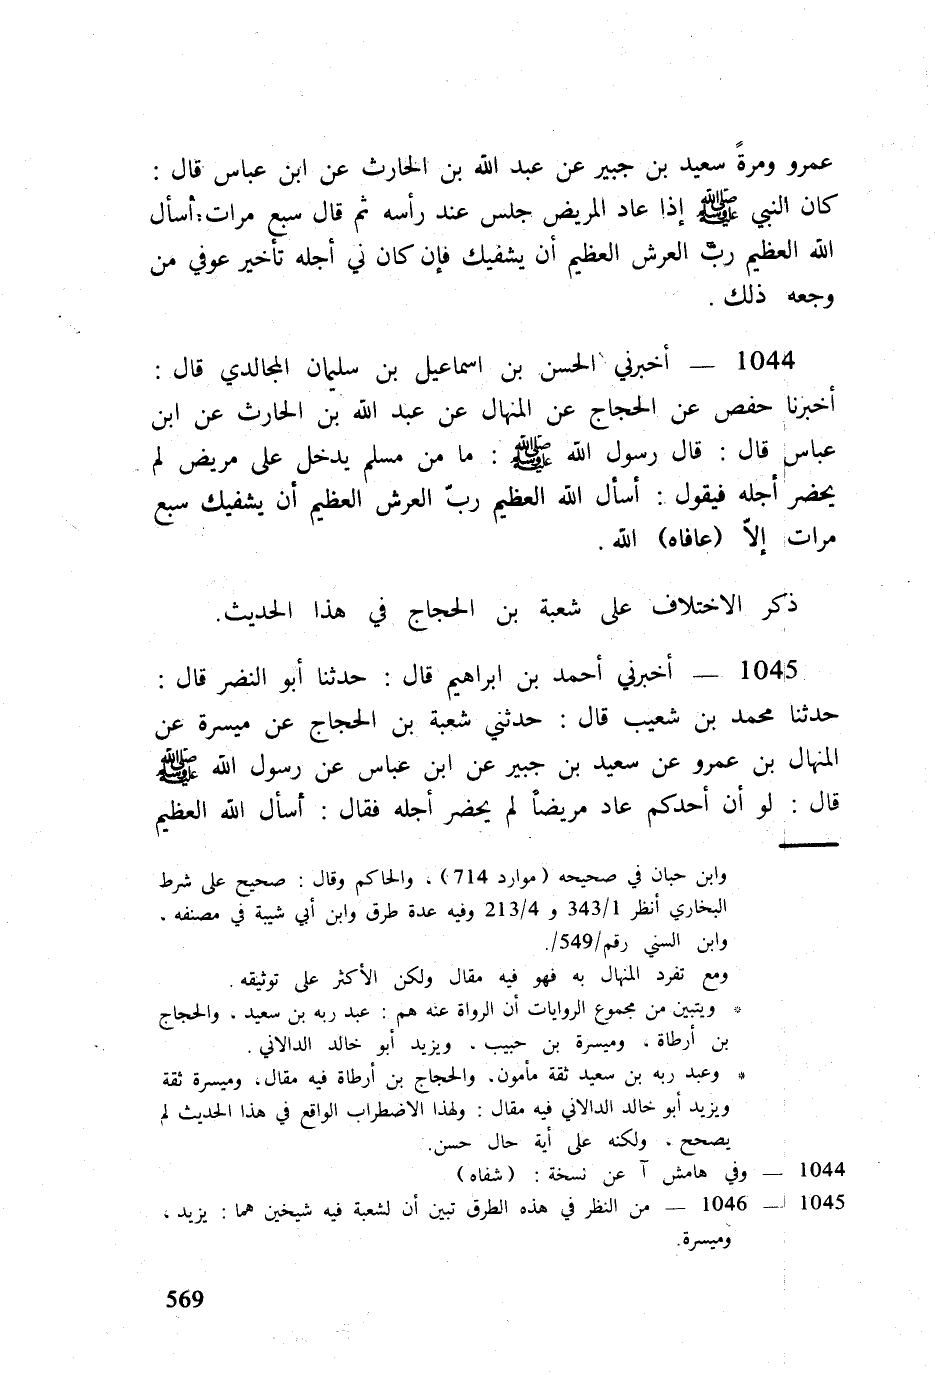 عمرو ومرةً سعيد بن جبير عن عبد الله بن الحارث عن ابن عباس قال :
كان النبي ﷺ إذا عاد المريض جلس عند رأسه ثم قال سبع مرات: أسأل
الله العظيم ربّ العرش العظيم أن يشفيك فإن كان في أجله تأخير عوفي من
وجعه ذلك .
1044 — أخبرني الحسن بن اسماعيل بن سليمان المجالدي قال :
أخبرنا حفص عن الحجاج عن المنهال عن عبد الله بن الحارث عن ابن
عباس قال : قال رسول الله ﷺ : ما من مسلم يدخل على مريض لم
يحضر أجله فيقول : أسأل الله العظيم ربّ العرش العظيم أن يشفيك سبع
مرات إلاّ (عافاه) الله .
ذكر الاختلاف على شعبة بن الحجاج في هذا الحديث.
1045 — أخبرني أحمد بن ابراهيم قال : حدثنا أبو النضر قال :
حدثنا محمد بن شعيب قال : حدثني شعبة بن الحجاج عن ميسرة عن
المنهال بن عمرو عن سعيد بن جبير عن ابن عباس عن رسول الله ﷺ
قال : لو أن أحدكم عاد مريضاً لم يحضر أجله فقال : أسأل الله العظيم
وابن حبان في صحيحه (موارد 714) ، والحاكم وقال : صحيح على شرط
البخاري أنظر 343/1 و 213/4 وفيه عدة طرق وابن أبي شيبة في مصنفه ،
وابن السني رقم/549/.
ومع تفرد المنهال به فهو فيه مقال ولكن الأكثر على توثيقه .
* ويتبين من مجموع الروايات أن الرواة عنه هم : عبد ربه بن سعيد ، والحجاج
بن أرطاة ، وميسرة بن حبيب ، ويزيد أبو خالد الدالاني .
* وعبد ربه بن سعيد ثقة مأمون، والحجاج بن أرطاة فيه مقال، وميسرة ثقة
ويزيد أبو خالد الدالاني فيه مقال : ولهذا الاضطراب الواقع في هذا الحديث لم
يصحح ، ولكنه على أية حال حسن.
1044 — وفي هامش آ عن نسخة : (شفاه)
1045 — 1046 — من النظر في هذه الطرق تبين أن لشعبة فيه شيخين هما : يزيد ،
وميسرة.
569